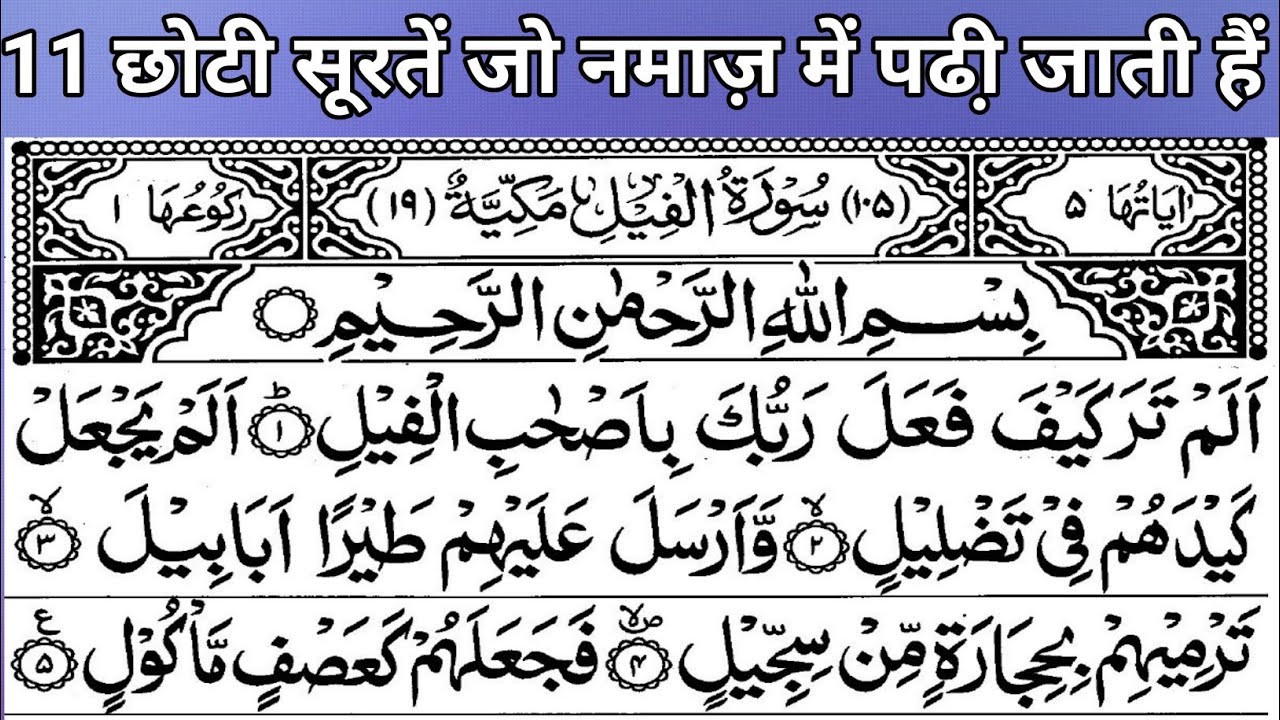 11 छोटी सूरतें जो नमाज़ में पढी़ जाती हैं
اٰيَاتُهَا ٥ (١٠٥) سُوْرَةُ الْفِيْلِ مَكِّيَّةٌ (١٩) رُكُوْعُهَا ١
بِسْمِ اللّٰهِ الرَّحْمٰنِ الرَّحِيْمِ
اَلَمْ تَرَ كَيْفَ فَعَلَ رَبُّكَ بِاَصْحٰبِ الْفِيْلِ ؕ١ اَلَمْ يَجْعَلْ
كَيْدَهُمْ فِيْ تَضْلِيْلٍ ۙ٢ وَّاَرْسَلَ عَلَيْهِمْ طَيْرًا اَبَابِيْلَ ۙ٣
تَرْمِيْهِمْ بِحِجَارَةٍ مِّنْ سِجِّيْلٍ ۪ۙ۴ فَجَعَلَهُمْ كَعَصْفٍ مَّاْكُوْلٍ ع ٥